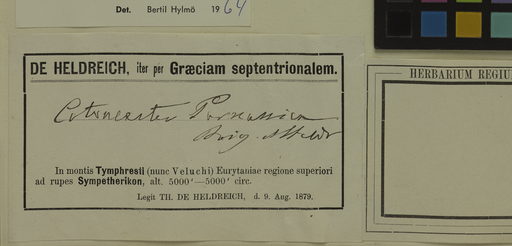 Det. Bertil Hylmö 1964
DE HELDREICH, iter per Græciam septentrionalem.
HERBARIUM REGIU
Cotoneaster Parnassica
Boiss. & Heldr
In montis Tymphresti (nunc Veluchi) Eurytaniae regione superiori
ad rupes Sympetherikon, alt. 5000'—5000' circ.
Legit TH. DE HELDREICH, d. 9. Aug. 1879.